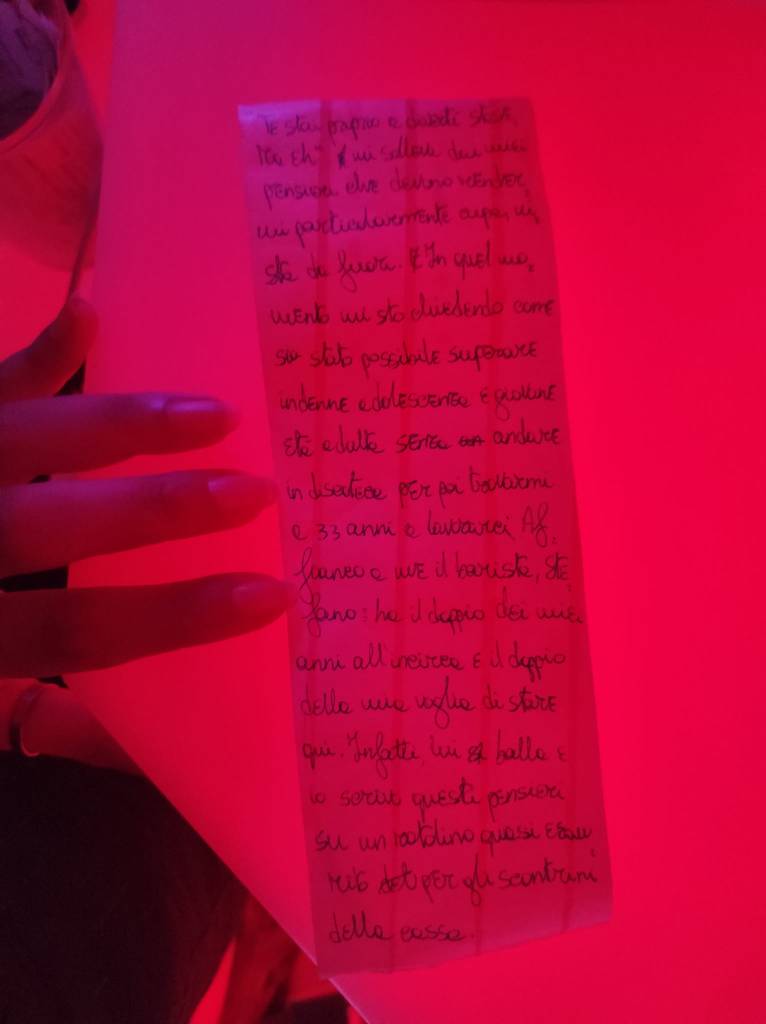 Te stai proprio a diverti stase,
Ma eh" mi solleva dai miei
pensieri che devono render,
mi particolarmente cupa, vi,
sta da fuori. In quel mo,
mento mi sto chiedendo come
sia stato possibile superare
indenne adolescenza e giovane
età adulta senza andare
in discoteca per poi trovarmi
a 33 anni a lavorarci. Af,
fianco a me il barista, Ste,
fano: ha il doppio dei miei
anni all'incirca e il doppio
della mia voglia di stare
qui. Infatti, lui balla e
io scrivo questi pensieri
su un rotolino quasi esau,
rito per gli scontrini
della cassa.